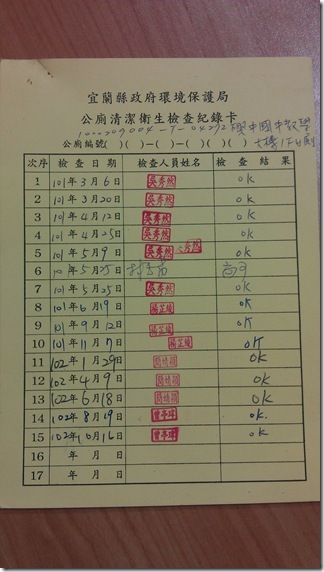 宜蘭縣政府環境保護局
公廁清潔衛生檢查紀錄卡
公廁編號( )( )－( )－( )( )( )
國中教學
大樓1F女廁
次序 檢查日期 檢查人員姓名 檢查結果
1 101年3月6日 吳秀然 OK
2 101年3月20日 吳秀然 OK
3 101年4月12日 吳秀然 OK
4 101年4月25日 吳秀然 OK
5 101年5月9日 吳秀然 吳秀然 OK
6 年5月25日
7 101年5月25日 吳秀然 OK
8 101年6月19日 OK
9 101年9月12日 OK
10 101年11月7日 OK
11 102年1月29日 OK
12 102年4月9日 OK
13 102年5月18日 OK
14 102年8月19日 OK.
15 102年10月16日 OK
16 年 月 日
17 年 月 日